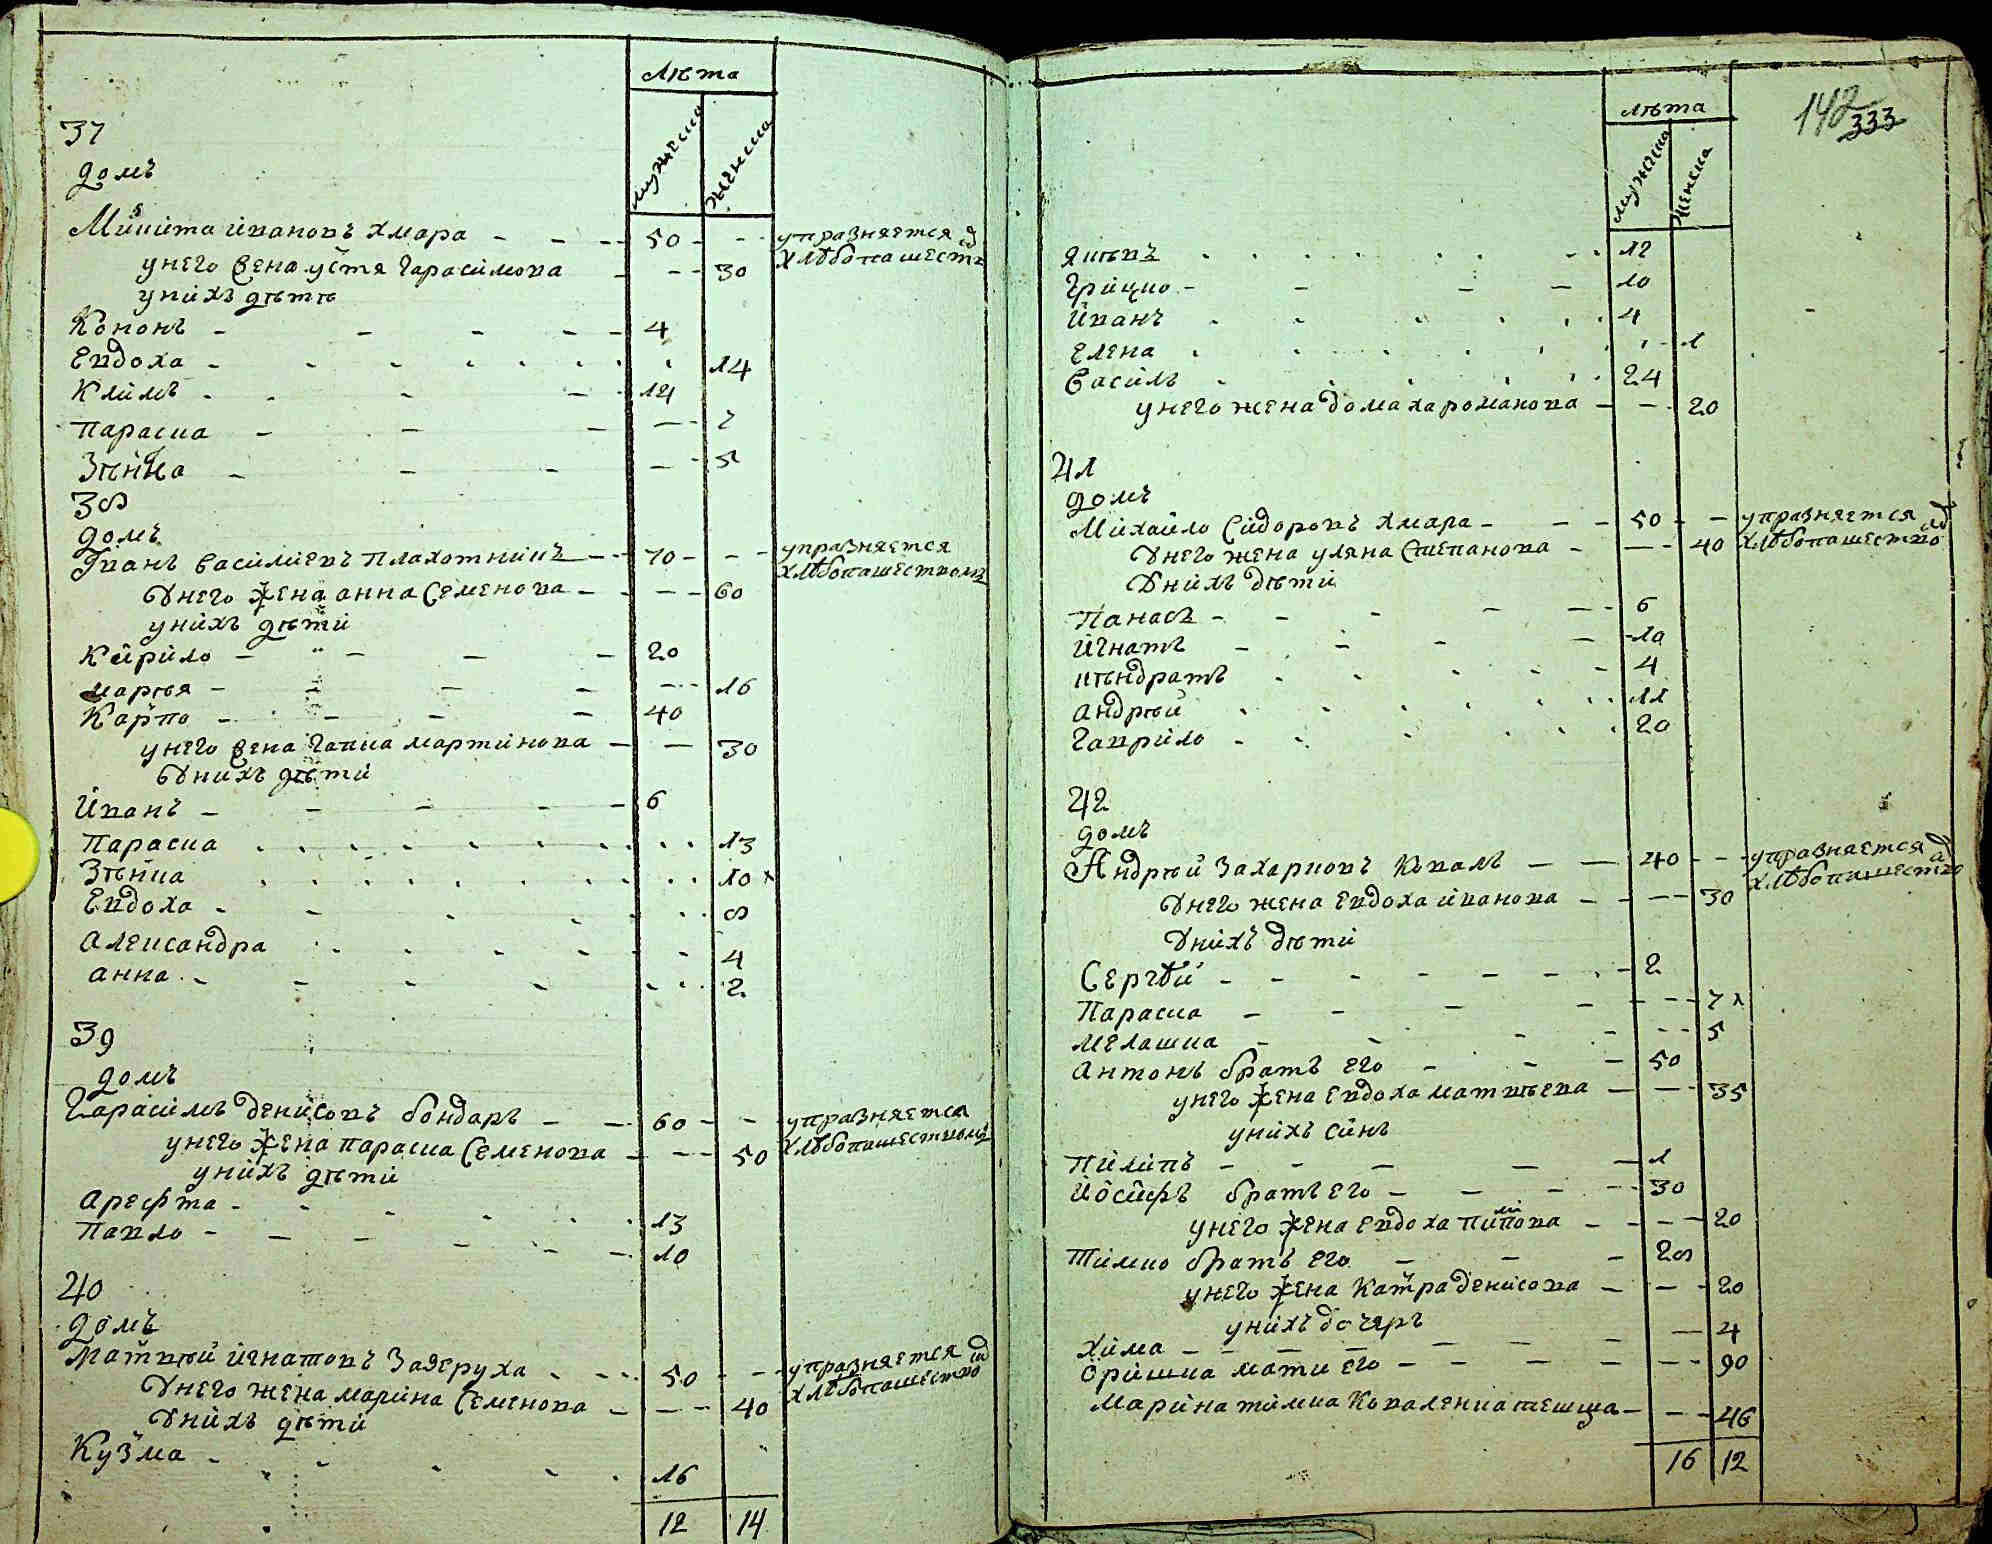 лѣта
мужеска
женска
37
домъ
Микита Ивановъ Хмара - - - 50 - - - упразняется
у него жена устя Гарасимова - - - 30 хлѣбопашеств
у нихъ дѣтѣ
Кононъ - - - - - 4
Евдоха - - - - - 14
Климъ - - - 14
Параска - - - - 7
Зѣнка - - - - 5
38
домъ
Іванъ Василиевъ Плахотникъ - - 70 - - - упразняется
Унего жена анна Семенова - - - - 60 хлѣбопашествомъ
унихъ дѣти
Кирило - - - - 20
марья - - - - - 16
Карпо - - - - 40
унего жена Гапка мартинова - - 30
Унихъ дѣти
Иванъ - - - - - 6
Параска - - - - - 13
Зѣнка - - - - - 10
Евдоха - - - - - 8
Александра - - - - - 4
анна - - - - - 2
39
домъ
Гарасимъ денисовъ бондаръ - - 60 - - упразняетса
унего жена параска Семенова - - - 50 хлѣбопашествомъ
унихъ дѣти
Арефта - - - - - 13
Павло - - - - - 10
40
домъ
Матвѣй игнатовъ Задеруха - - - 50 - - упразняется
Унего жена марина Семенова - - - 40 хлѣбопашество
Унихъ дѣти
Кузма - - - - - 16
12 14
142
333
лѣта
мужеска
женска
Яковъ - - - - - 12
Грицко - - - - 10
Иванъ - - - - - 4
Елена - - - - - 1
Василь - - - - - 24
унего жена домаха романова - - - 20
41
домъ
Михайло Сидоровъ Хмара - - - 50 - - упразняется
Унего жена уляна Степанова - - - 40 хлѣбопашество
Унихъ дѣти
Панасъ - - - - - 6
Игнатъ - - - - 10
кѣндратъ - - - - 4
андрѣй - - - - - 11
Гаврило - - - - - 20
42
домъ
Андрѣй Захариовъ Коваль - - 40 - - упразнается
Унего жена Евдоха иванова - - - - 30 хлѣбопашество
Унихъ дѣти
Сергѣй - - - - - 2
Параска - - - - - 7
мелашка - - - - - 5
Антонъ братъ его - - - 50
унего жена Евдоха матвѣева - - - 35
унихъ синъ
Пилипъ - - - - - 1
Иосифъ братъ его - - - - 30
унего жена Евдоха пилипова - - - - 20
Тимко братъ его - - - 28
унего жена Катра денисова - - - - 20
унихъ дочеръ
Хима - - - - - - 4
Оришка мати его - - - - - 90
Марина тимка Коваленка тешща - - - 46
16 12